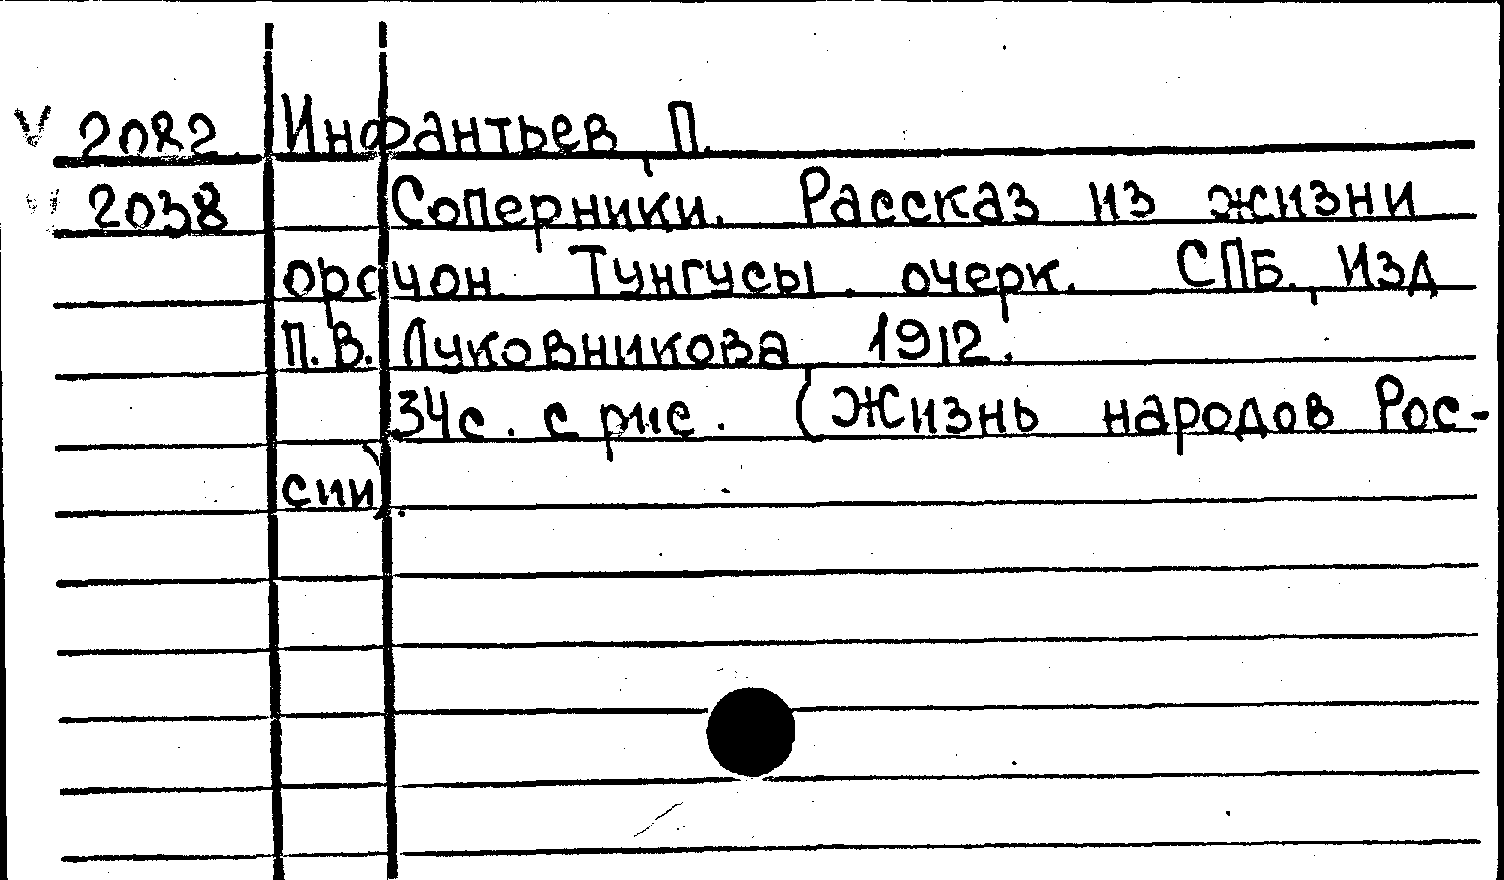 V 2082. Инфантьев, П.
V 2038 Соперники. Рассказ из жизни
орочон. Тунгусы. очерк. СПБ., Изд
П. В. Луковникова 1912.
34с. с рис. (Жизнь народов Рос-
сии).